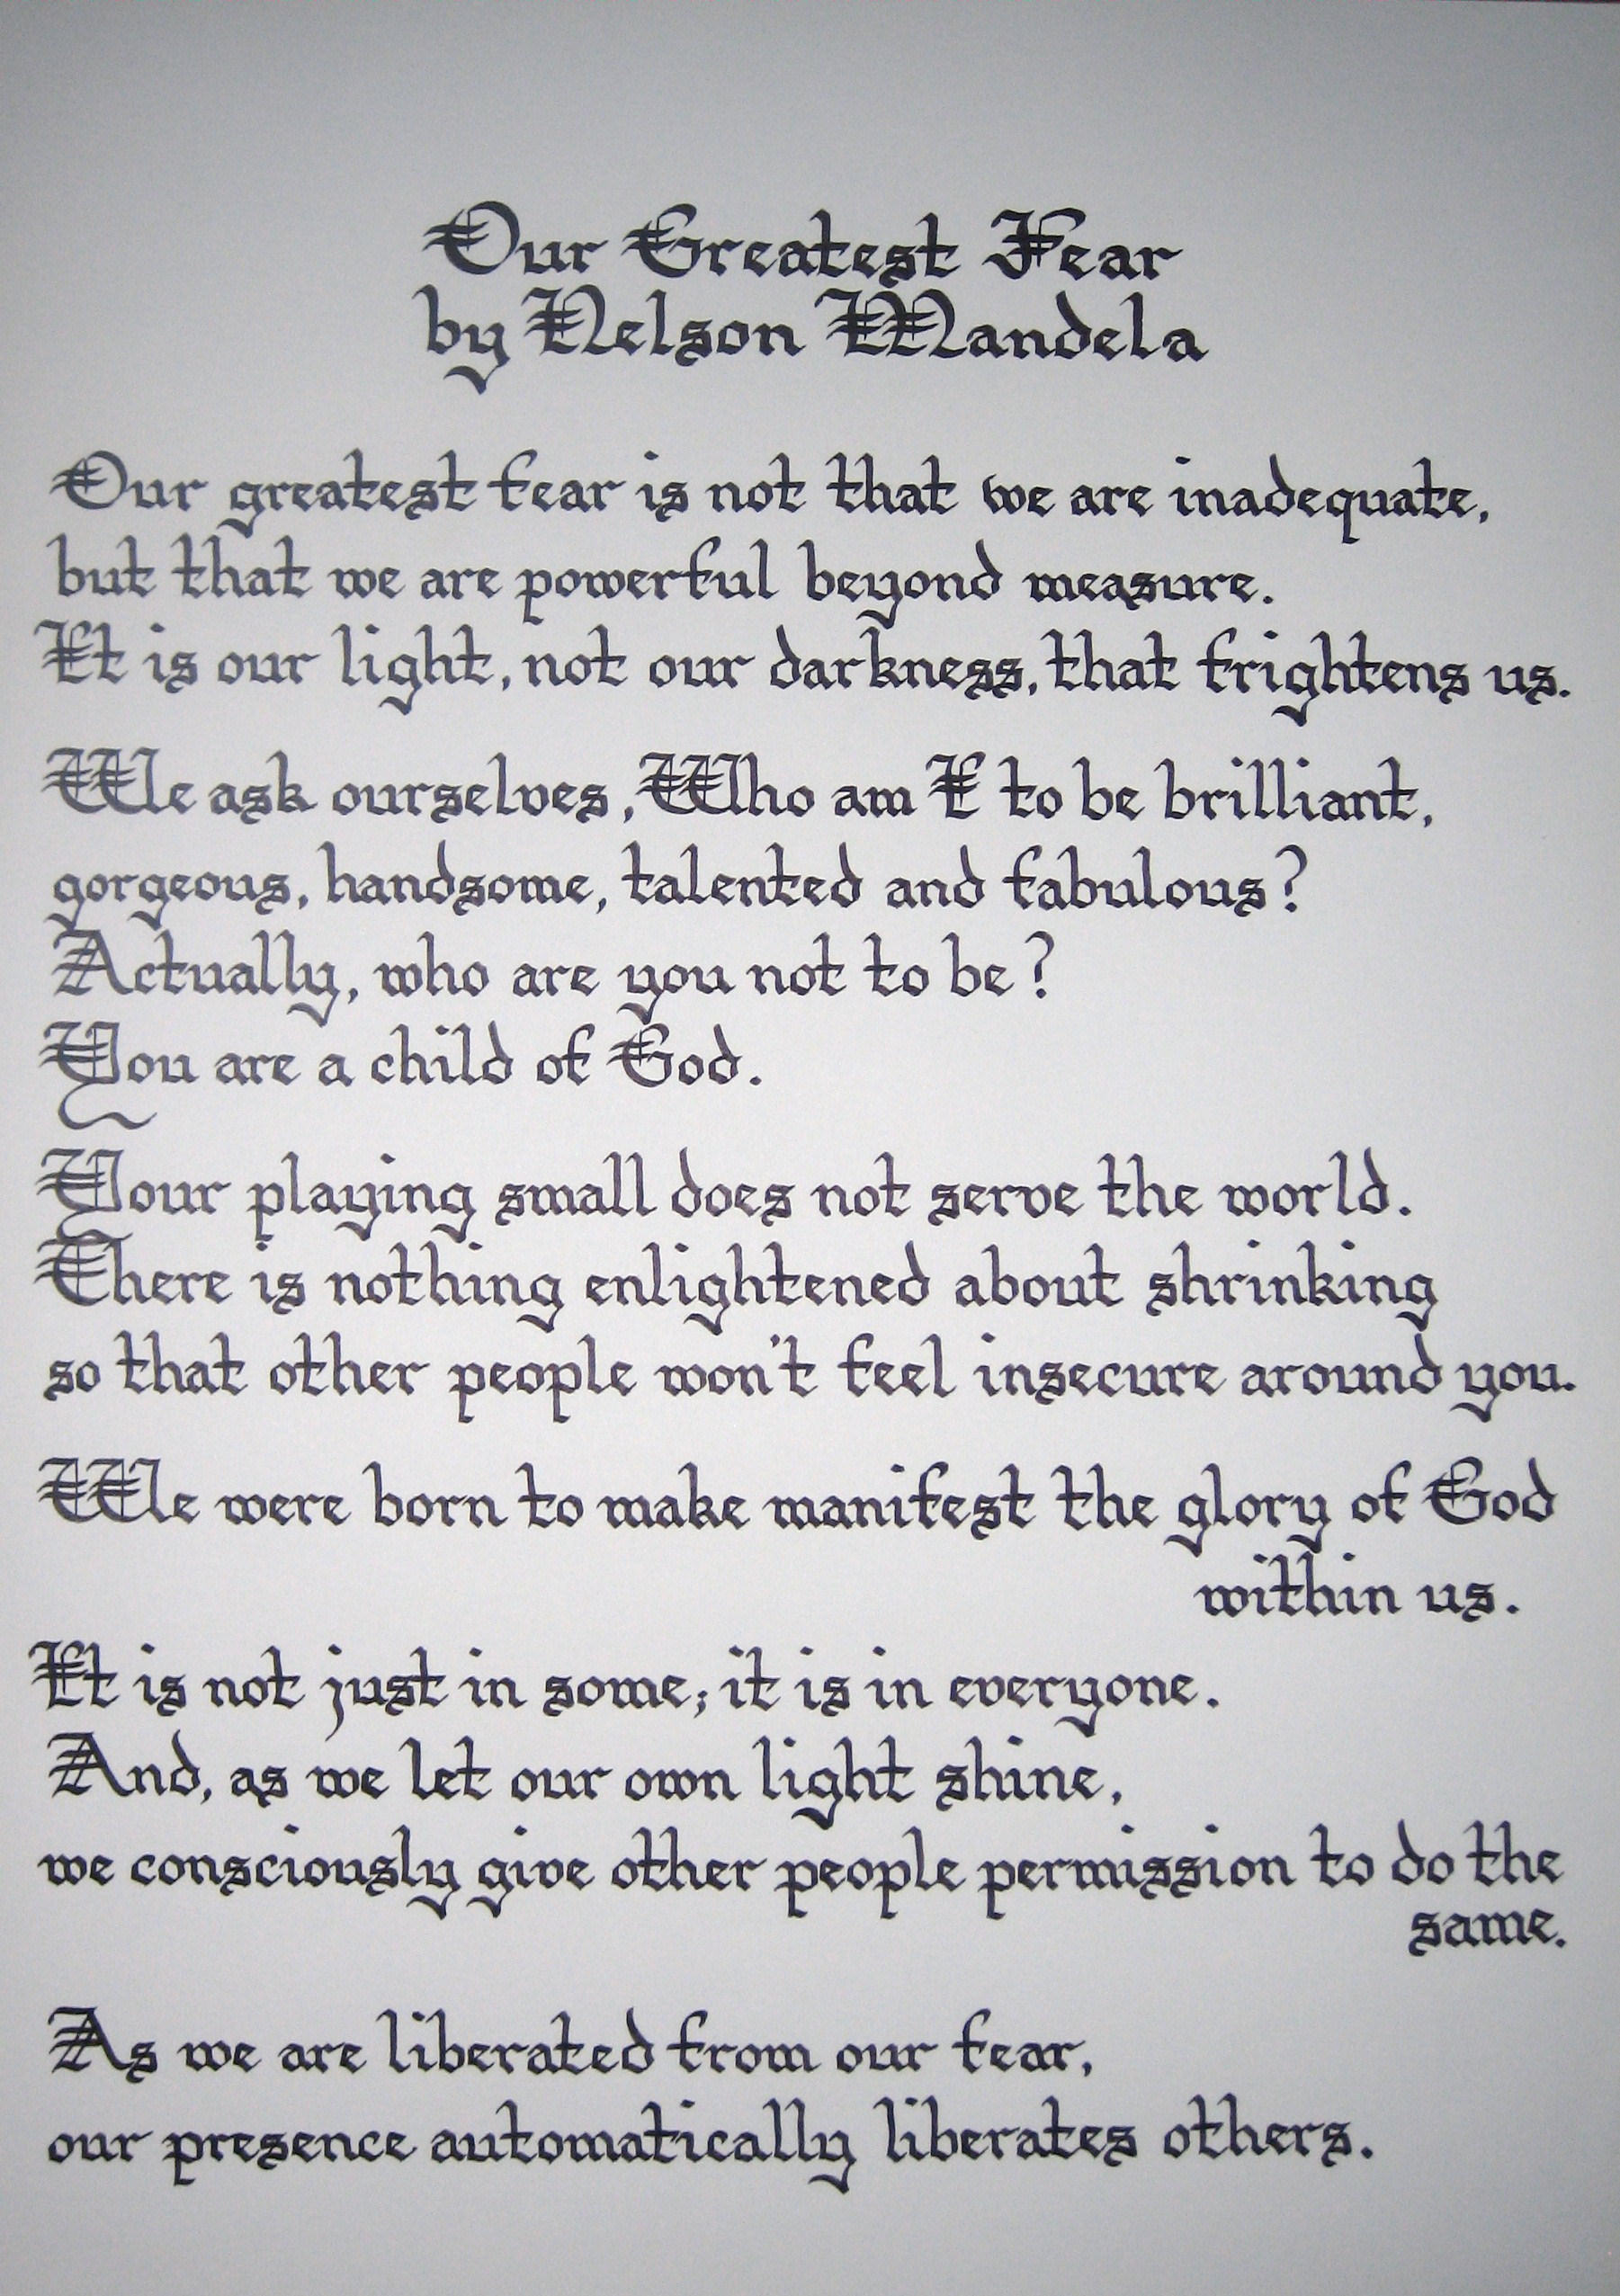 Our Greatest Fear
by Nelson Mandela
Our greatest fear is not that we are inadequate,
but that we are powerful beyond measure.
It is our light, not our darkness, that frightens us.
We ask ourselves, Who am I to be brilliant,
gorgeous, handsome, talented and fabulous?
Actually, who are you not to be?
You are a child of God.
Your playing small does not serve the world.
There is nothing enlightened about shrinking
so that other people won't feel insecure around you.
We were born to make manifest the glory of God
within us.
It is not just in some; it is in everyone.
And, as we let our own light shine,
we consciously give other people permission to do the
same.
As we are liberated from our fear,
our presence automatically liberates others.